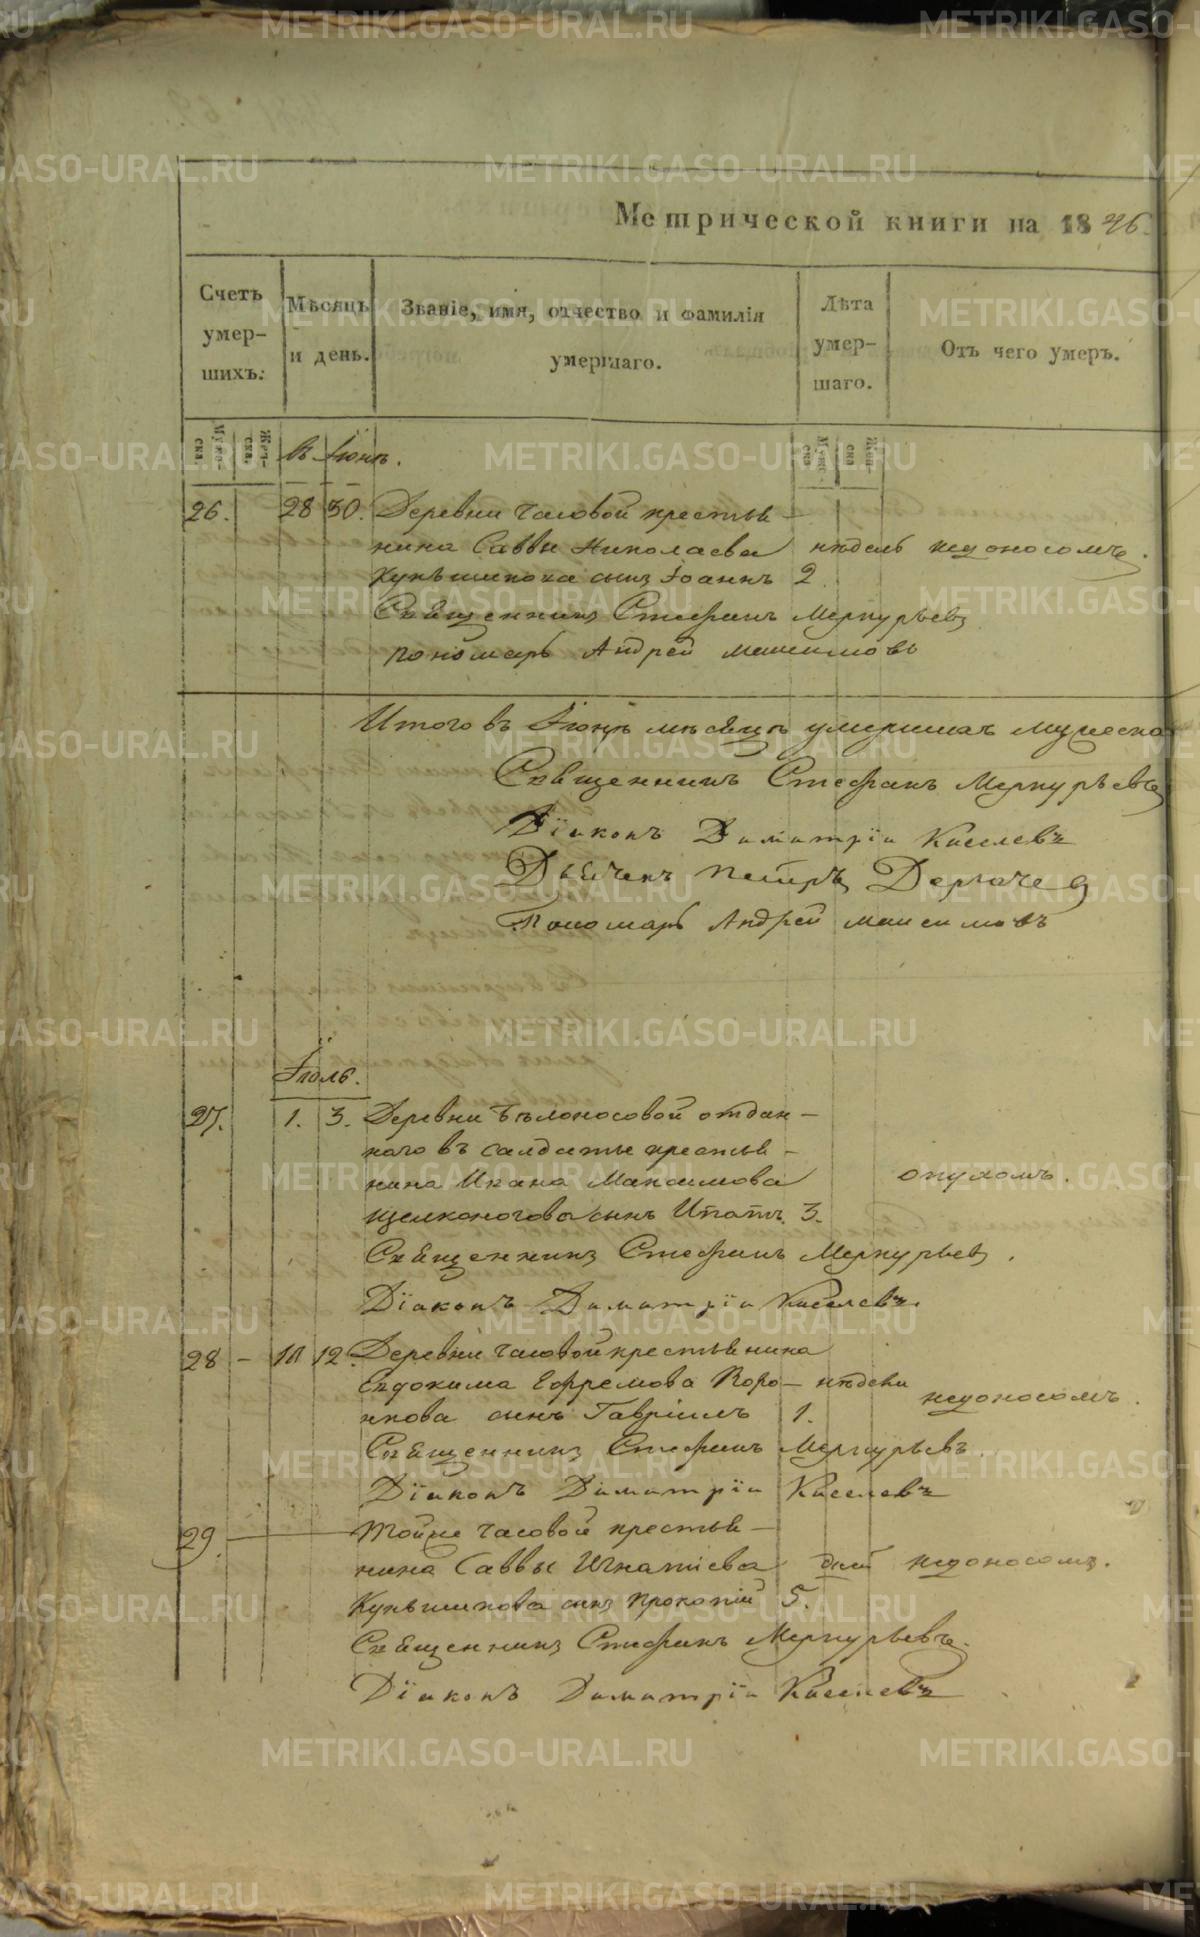 Метрической книги на 1846.
Счетъ умершихъ.
Мѣсяцъ и день.
Званіе, имя, отчество и фамилія умершаго.
Лѣта умершаго.
Отъ чего умеръ.
Муже-ска.
Жен-ска.
въ Іюнѣ.
Муже-ска
Жен-ска
26. 28 30. Деревни Часовой крестья-
нина Саввы Николаева недѣль недоносомъ.
сынъ Іоаннъ 2.
Священникъ Стефанъ Меркурьевъ
пономарь Андрей Максимовъ
Итого въ Іюнѣ мѣсяцѣ умершихъ мужеска
Священникъ Стефанъ Меркурьевъ
Діаконъ Димитрій Киселевъ
Дьячекъ Петръ Дергачев
Пономарь Андрей Максимовъ
Іюль.
27. 1. 3. Деревни Бѣлоносовой отдан-
наго въ салдаты крестья-
нина Ивана Максимова опухомъ.
Щелконогова сынъ Ипатъ. 3.
Священникъ Стефанъ Меркурьев.
Діаконъ Димитрій Киселевъ.
28 - 10 12. Деревни Часовой крестьянина
Евдокима Ефремова Коро- недоносомъ.
нкова сынъ Гавріилъ 1.
Священникъ Стефанъ Меркурьевъ.
Діаконъ Димитрій Киселевъ
29. Тойже Часовой крестья-
нина Саввы Игнатіева дней недоносомъ.
сынъ Прокопій 5.
Священникъ Стефанъ Меркурьевъ.
Діаконъ Димитрій Киселевъ
METRIKI.GASO-URAL.RU